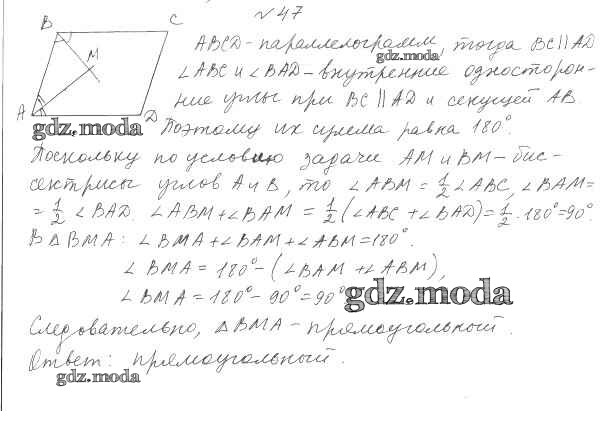 №47
B C
ABCD - параллелограмм, тогда BC||AD
gdz.moda
M
∠ABC и ∠BAD - внутренние односторон-
ние углы при BC||AD и секущей AB.
A D
gdz.moda
Поэтому их сумма равна 180°.
Поскольку по условию задачи AM и BM - бис-
сектрисы углов A и B, то ∠ABM = 1/2 ∠ABC, ∠BAM =
= 1/2 ∠BAD. ∠ABM + ∠BAM = 1/2 (∠ABC + ∠BAD) = 1/2 · 180° = 90°.
В △BMA: ∠BMA + ∠BAM + ∠ABM = 180°.
∠BMA = 180° - (∠BAM + ∠ABM),
∠BMA = 180° - 90° = 90°
gdz.moda
Следовательно, △BMA - прямоугольный.
Ответ: прямоугольный.
gdz.moda